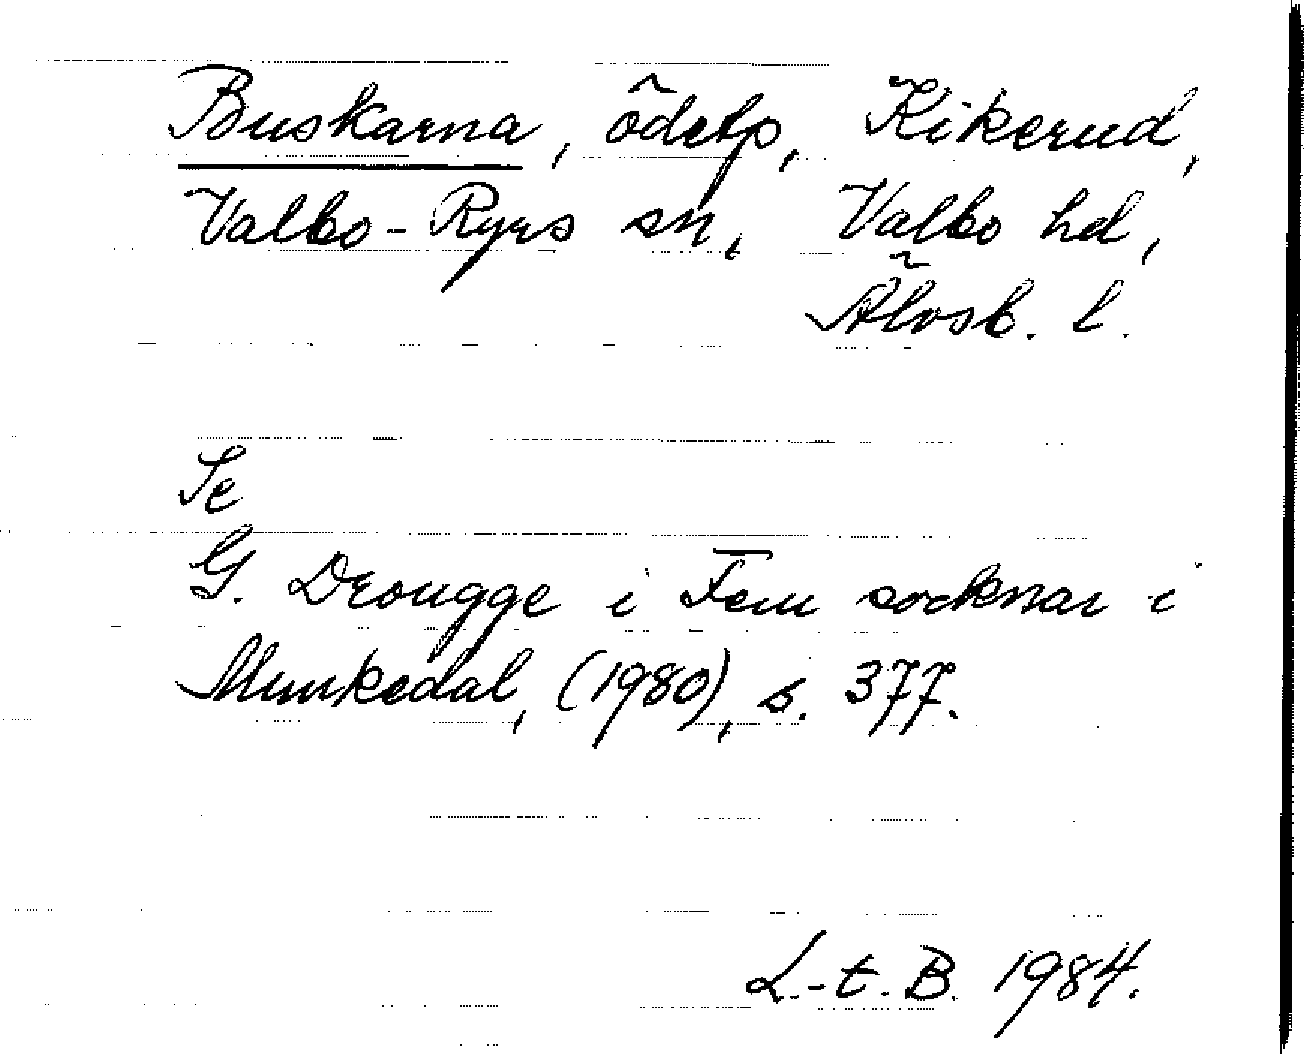 Buskarna, ödetp, Kikerud,
Valbo-Ryrs sn, Valbo hd,
Älvsb. l.
Se
G. Drougge i Fem socknar i
Munkedal, (1980), s. 377.
L.-t. B. 1984.